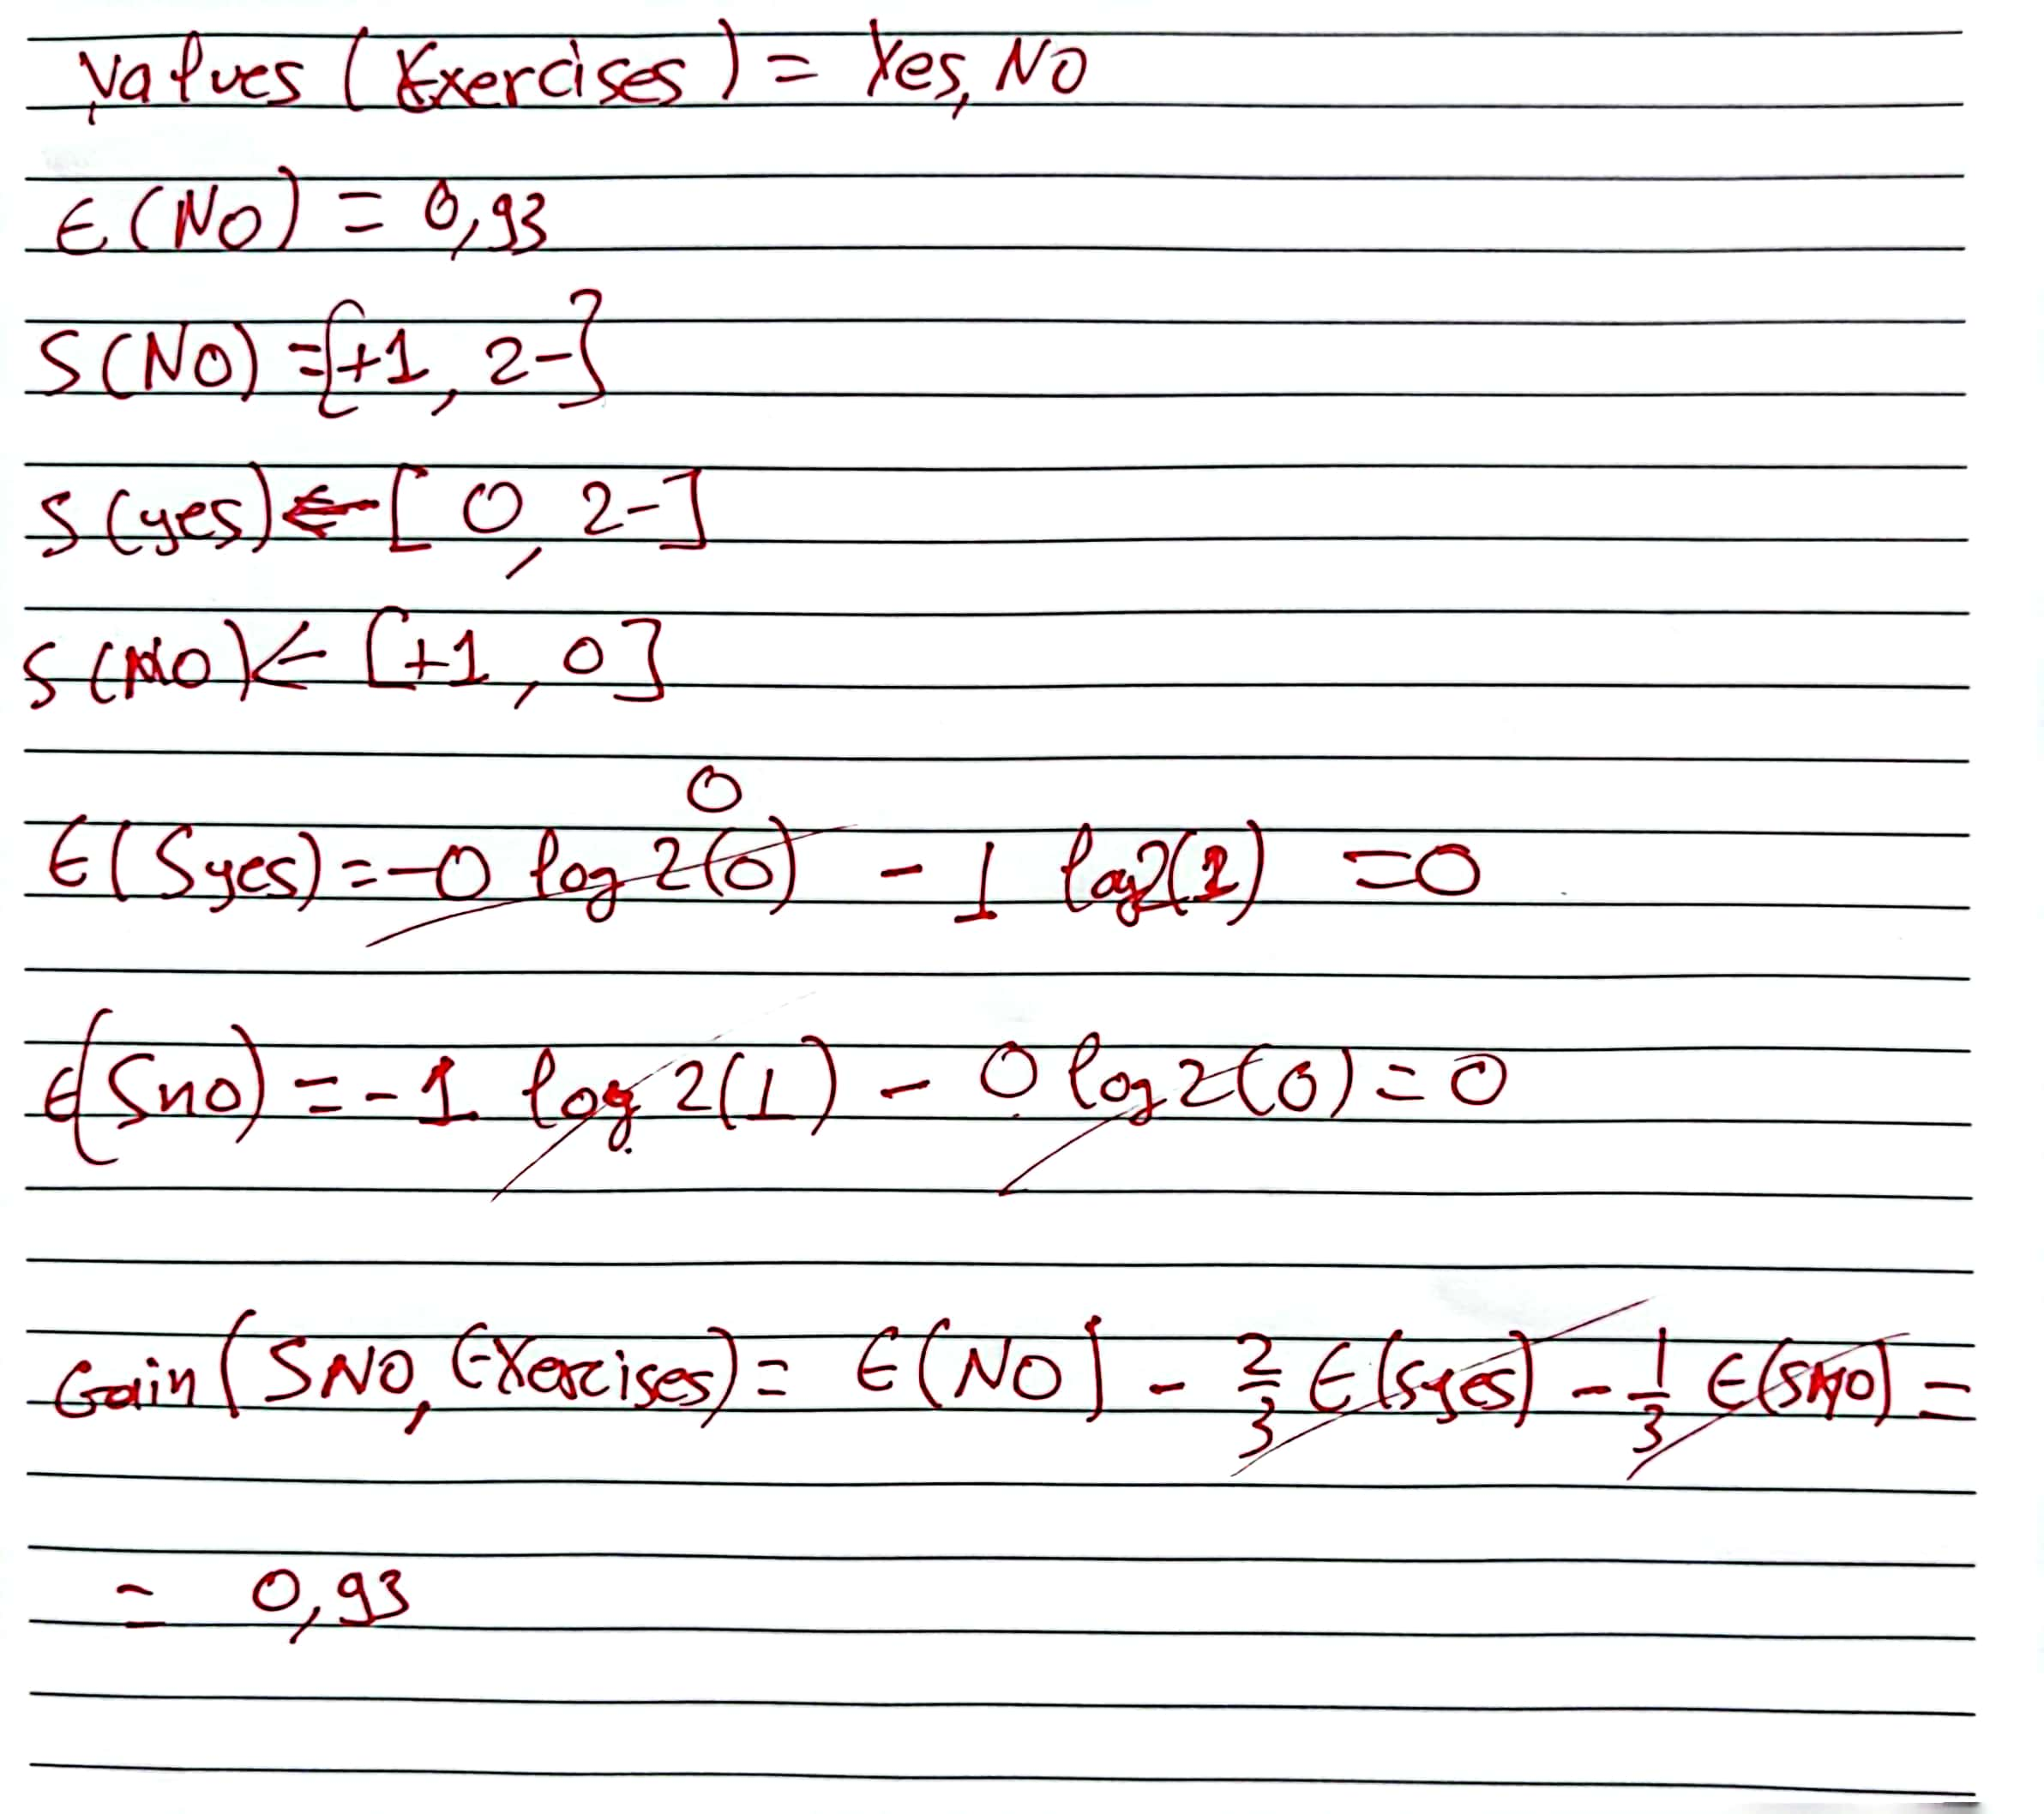 Values (Exercises) = Yes, NO
E(NO) = 0,93
S(NO) = {+1, 2-}
S(yes) ← [0, 2-]
S(NO) ← [+1, 0]
0
E(Syes) = -0 log2(0) - 1 log2(1) = 0
E(Sno) = -1 log2(1) - 0 log2(0) = 0
Gain(SNO, Exercises) = E(NO) - 2/3 E(Syes) - 1/3 E(SNO) =
= 0,93